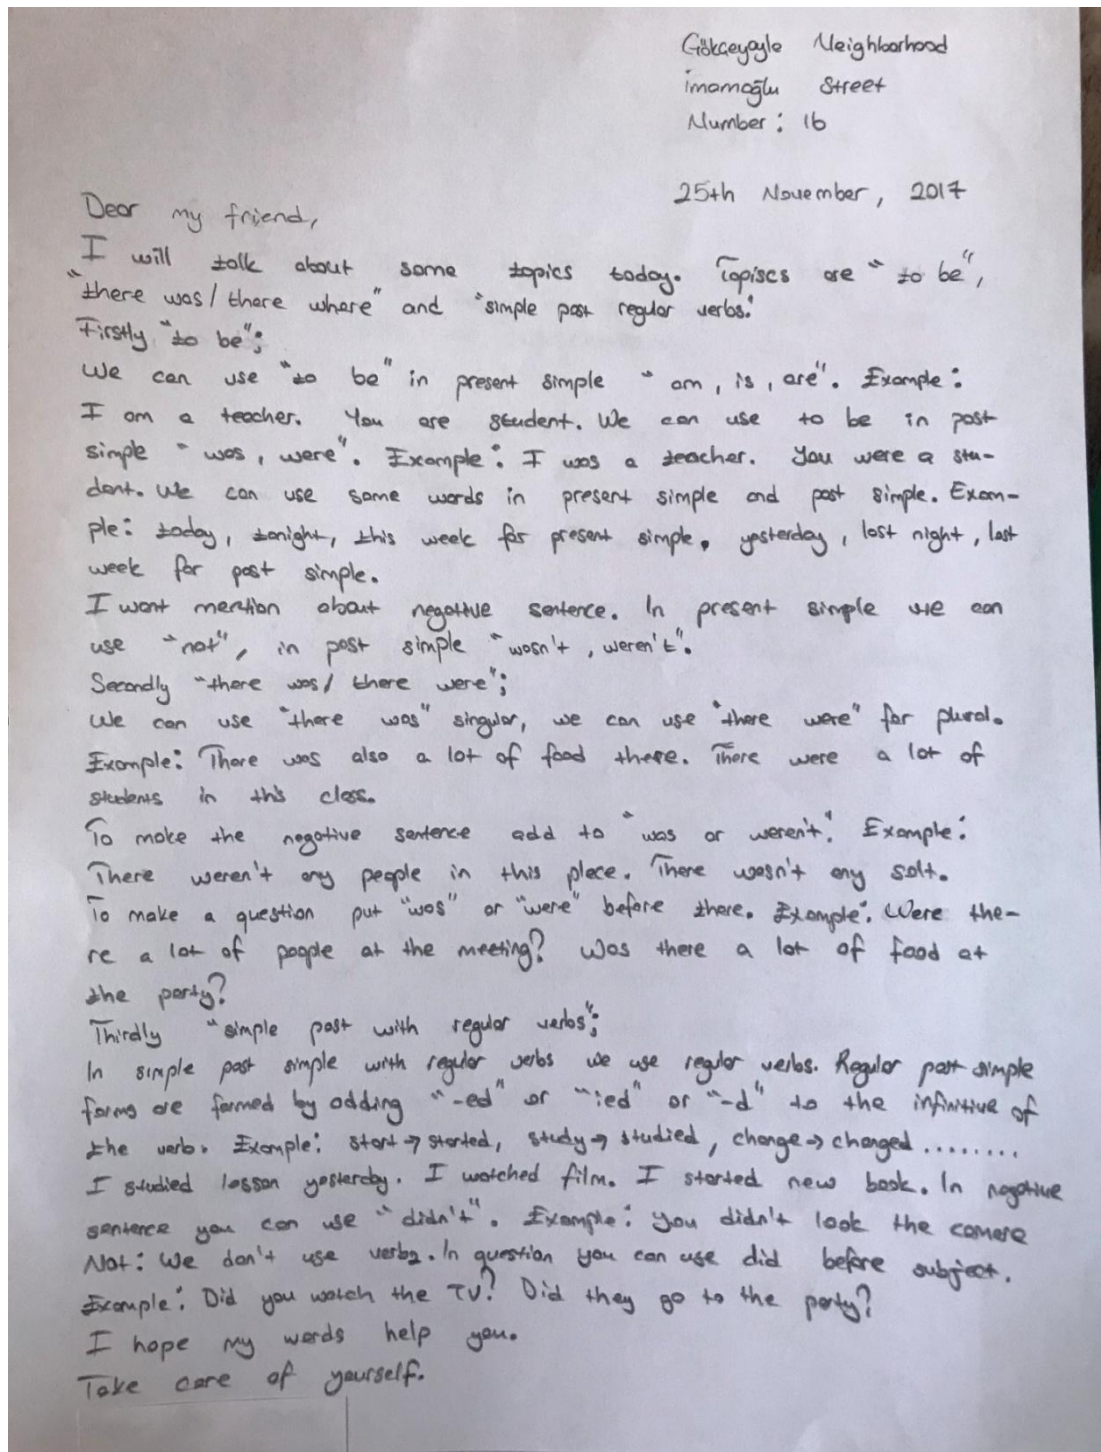 Gökçeyayla Neighborhood
imamoğlu Street
Number: 16
25th November, 2017
Dear my friend,
I will talk about some topics today. Topiscs are "to be",
"there was/ there where" and "simple past regular verbs."
Firstly "to be";
We can use "to be" in present simple "am, is, are". Example:
I am a teacher. You are student. We can use to be in past
simple "was, were". Example: I was a teacher. You were a stu-
dent. We can use some words in present simple and past simple. Exam-
ple: today, tonight, this week for present simple. yesterday, last night, last
week for past simple.
I want mention about negative sentence. In present simple we can
use "not", in past simple "wasn't, weren't".
Secondly "there was/ there were";
We can use "there was" singular, we can use "there were" for plural.
Example: There was also a lot of food there. There were a lot of
students in this class.
To make the negative sentence add to "was or weren't." Example:
There weren't any people in this place. There wasn't any salt.
To make a question put "was" or "were" before there. Example: Were the-
re a lot of people at the meeting? Was there a lot of food at
the party?
Thirdly "simple past with regular verbs";
In simple past simple with regular verbs we use regular verbs. Regular past simple
forms are formed by adding "-ed" or "-ied" or "-d" to the infinitive of
the verb. Example: start→started, study→studied, change→changed ........
I studied lesson yesterday. I watched film. I started new book. In negative
sentence you can use "didn't". Example: You didn't look the camera
Not: We don't use verb2. In question you can use did before subject.
Example: Did you watch the TV? Did they go to the party?
I hope my words help you.
Take care of yourself.